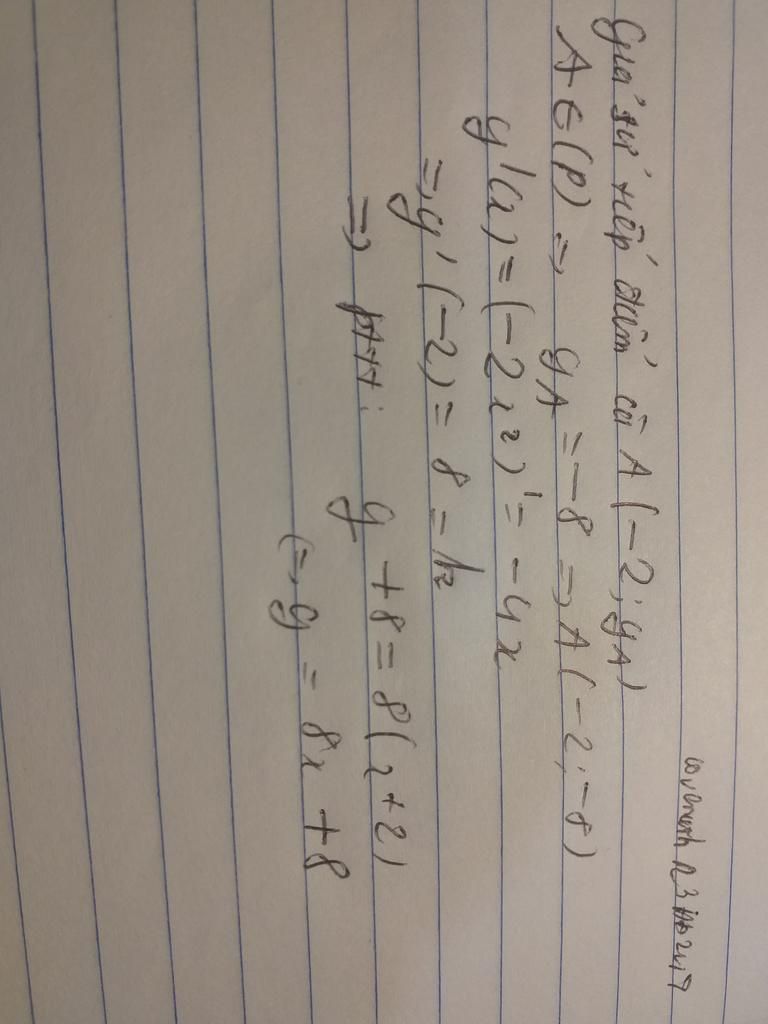 Giả sử tiếp điểm là A(-2; yA)
A ∈ (P) => yA = -8 => A(-2; -8)
y'(x) = (-2x²)' = -4x
=> y'(-2) = 8 = k
=> pttt: y + 8 = 8(x+2)
<=> y = 8x + 8